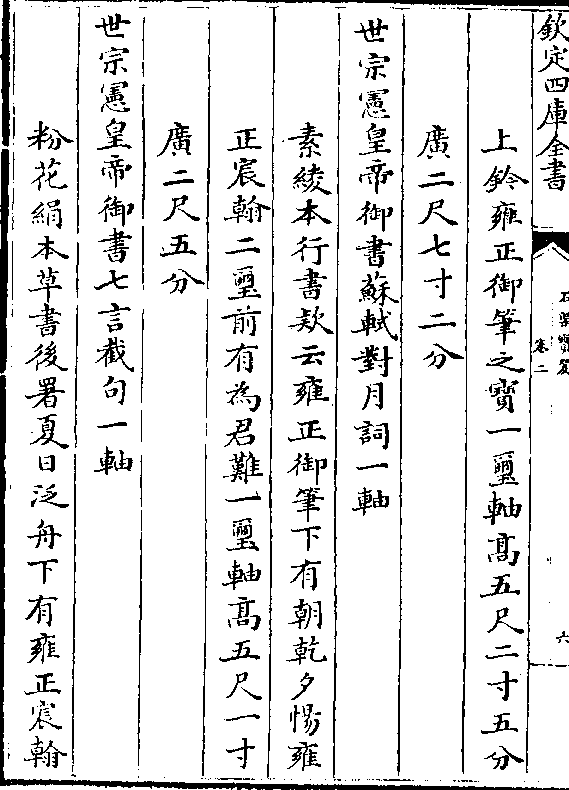 欽定四庫全書
石渠寳笈
卷二
六
上鈐雍正御筆之寳一璽軸髙五尺二寸五分
廣二尺七寸二分
世宗憲皇帝御書蘇軾對月詞一軸
素綾本行書欵云雍正御筆下有朝乾夕惕雍
正宸翰二璽前有為君難一璽軸髙五尺一寸
廣二尺五分
世宗憲皇帝御書七言截句一軸
粉花絹本草書後署夏日泛舟下有雍正宸翰